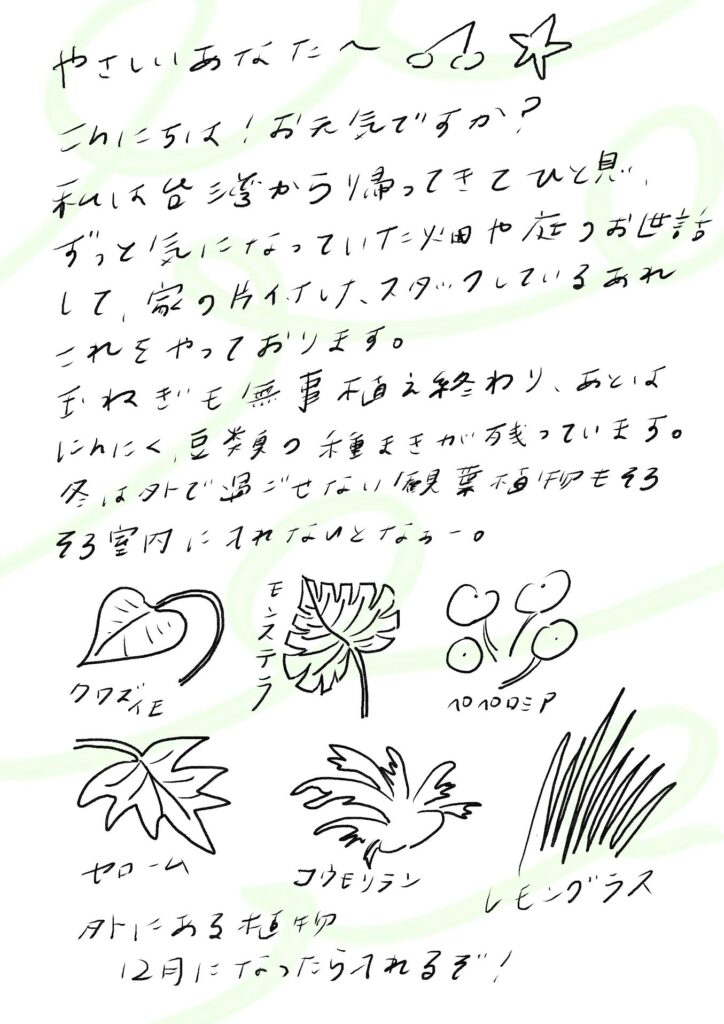 やさしいあなた〜
こんにちは!お元気ですか?
私は台湾から帰ってきてひと息、
ずっと気になっていた畑や庭のお世話
して、家の片付け、スタックしているあれ
これをやっております。
玉ねぎも無事植え終わり、あとは
にんにく、豆類の種まきが残っています。
冬は外で過ごせない観葉植物もそろ
そろ室内に入れないとなぁー。
クワズイモ
モンステラ
ペペロミア
セローム
コウモリラン
レモングラス
外にある植物
12月になったら入れるぞ!